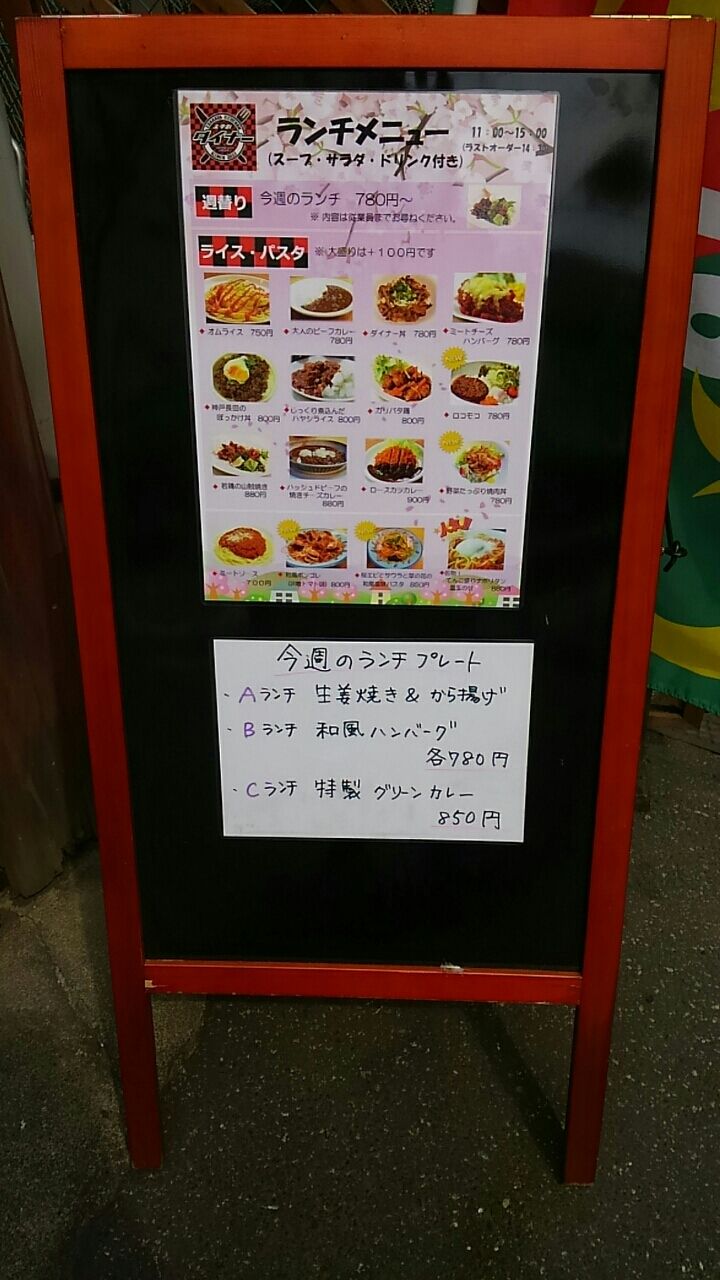 ダイナー
ランチメニュー
(スープ・サラダ・ドリンク付き)
11:00~15:00
(ラストオーダー14:
週替り 今週のランチ 780円~
※ 内容は従業員までお尋ねください。
ライス・パスタ ※ 大盛りは+100円です
◆ オムライス 750円
◆ 大人のビーフカレー
780円
◆ ダイナー丼 780円
◆ ミートチーズ
ハンバーグ 780円
◆ 神戸長田の
ぼっかけ丼 800円
◆ じっくり煮込んだ
ハヤシライス 800円
◆ ガリバタ鶏
800円
◆ ロコモコ 780円
◆ 若鶏の山賊焼き
880円
◆ ハッシュドビーフの
焼きチーズカレー
880円
◆ ロースカツカレー
900円
◆ 野菜たっぷり焼肉丼
780円
◆ ミートソース
700円
◆ 和風ボンゴレ
トマト 800円
◆ 桜エビとサワラと菜の花の
和風 パスタ 850円
てんこ盛りナポリタン
温玉のせ 880円
今週のランチプレート
・Aランチ 生姜焼き & から揚げ
・Bランチ 和風ハンバーグ
各780円
・Cランチ 特製 グリーンカレー
850円